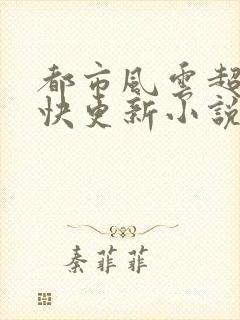 都市風雲超
快更新小說
秦菲菲